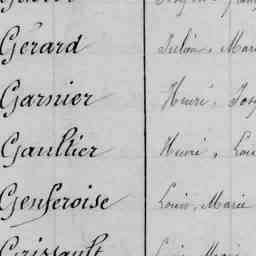 Gérard Julien, Marie
Garnier Henri, Jose
Gaultier Henri, Loui
Genseroise Louis, Marie
Grissault